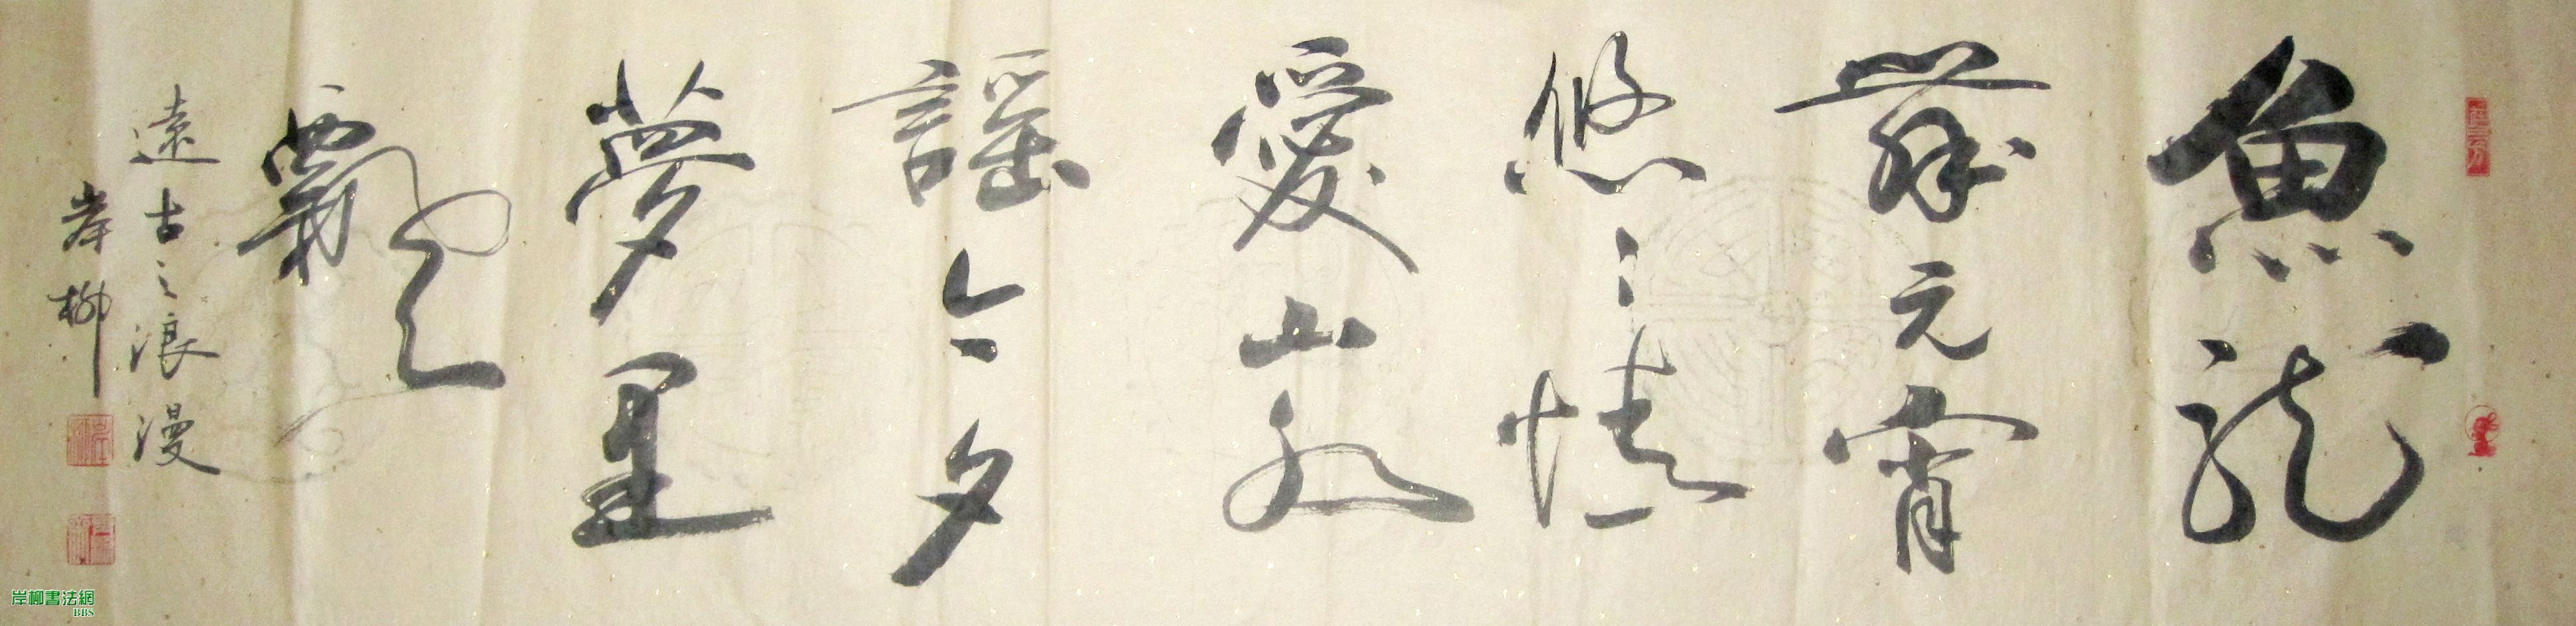 魚龍
舞元宵
悠〻情
愛山水
謠今夕
夢里
飄
遠古之浪漫
岸柳
岸柳書法網
BBS